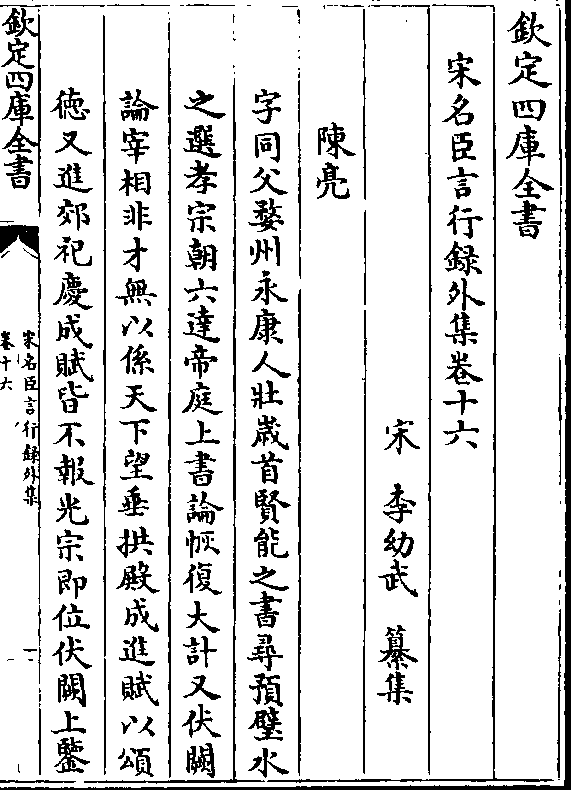 欽定四庫全書
宋名臣言行録外集卷十六
宋 李幼武 纂集
陳亮
字同父婺州永康人壯歲首賢能之書尋預璧水
之選孝宗朝六達帝庭上書論恢復大計又伏闕
論宰相非才無以係天下望垂拱殿成進賦以頌
徳又進郊祀慶成賦皆不報光宗即位伏闕上鑒
欽定四庫全書
宋名臣言行録外集
卷十六
一